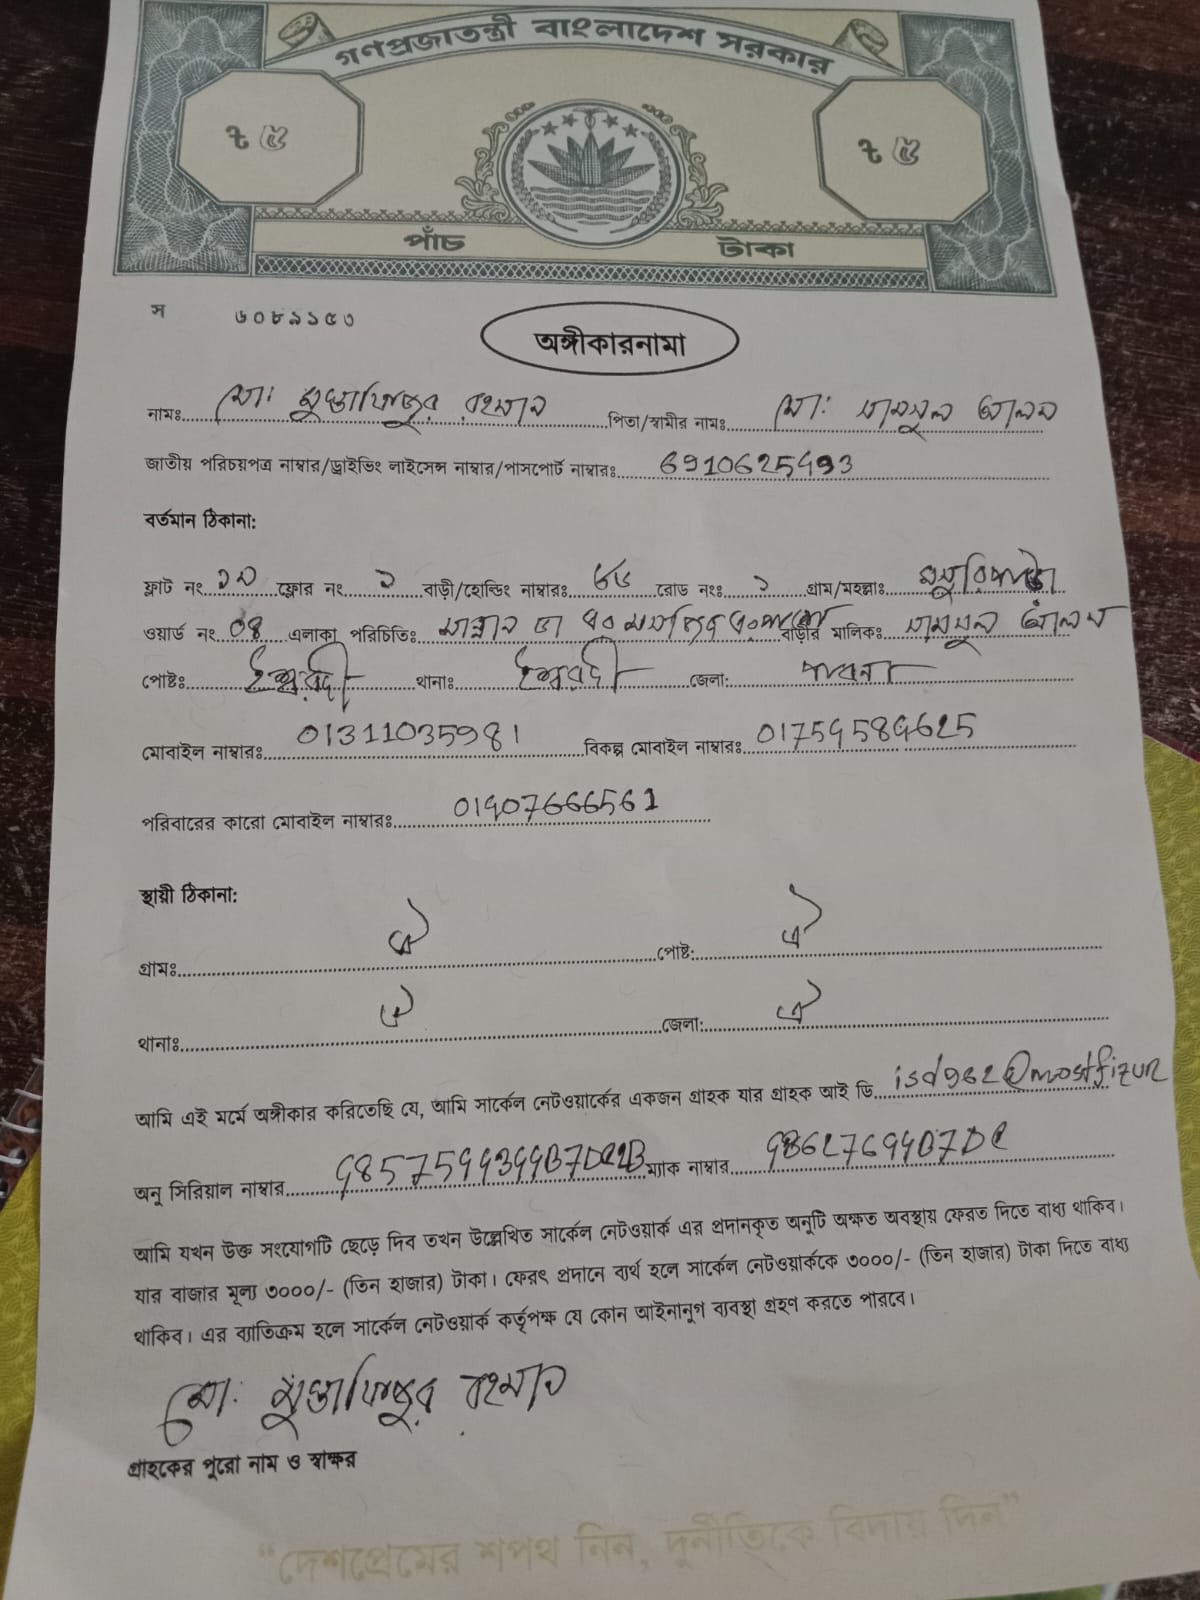 গণপ্রজাতন্ত্রী বাংলাদেশ সরকার
৳ ৫ ৳ ৫
পাঁচ টাকা
স ৬০৮৯১৫৩
অঙ্গীকারনামা
নামঃ মো: মুস্তাফিজুর রহমান পিতা/স্বামীর নামঃ মো: সামসুল আলম
জাতীয় পরিচয়পত্র নাম্বার/ড্রাইভিং লাইসেন্স নাম্বার/পাসপোর্ট নাম্বারঃ 6910625493
বর্তমান ঠিকানা:
ফ্লাট নং ফ্লোর নং ১ বাড়ী/হোল্ডিং নাম্বারঃ রোড নংঃ ১ গ্রাম/মহল্লাঃ
ওয়ার্ড নং 04 এলাকা পরিচিতিঃ বাড়ীর মালিকঃ সামসুল আলম
পোষ্টঃ ঈশ্বরদী থানাঃ ঈশ্বরদী জেলা: পাবনা
মোবাইল নাম্বারঃ 01311035981 বিকল্প মোবাইল নাম্বারঃ
পরিবারের কারো মোবাইল নাম্বারঃ
স্থায়ী ঠিকানা:
গ্রামঃ ঐ পোষ্ট: ঐ
থানাঃ ঐ জেলা: ঐ
আমি এই মর্মে অঙ্গীকার করিতেছি যে, আমি সার্কেল নেটওয়ার্কের একজন গ্রাহক যার গ্রাহক আই ডি isd962@mostfizur
অনু সিরিয়াল নাম্বার ম্যাক নাম্বার
আমি যখন উক্ত সংযোগটি ছেড়ে দিব তখন উল্লেখিত সার্কেল নেটওয়ার্ক এর প্রদানকৃত অনুটি অক্ষত অবস্থায় ফেরত দিতে বাধ্য থাকিব।
যার বাজার মূল্য ৩০০০/- (তিন হাজার) টাকা। ফেরৎ প্রদানে ব্যর্থ হলে সার্কেল নেটওয়ার্ককে ৩০০০/- (তিন হাজার) টাকা দিতে বাধ্য
থাকিব। এর ব্যাতিক্রম হলে সার্কেল নেটওয়ার্ক কর্তৃপক্ষ যে কোন আইনানুগ ব্যবস্থা গ্রহণ করতে পারবে।
মো: মুস্তাফিজুর রহমান
গ্রাহকের পুরো নাম ও স্বাক্ষর
“দেশপ্রেমের শপথ নিন, দুর্নীতিকে বিদায় দিন”